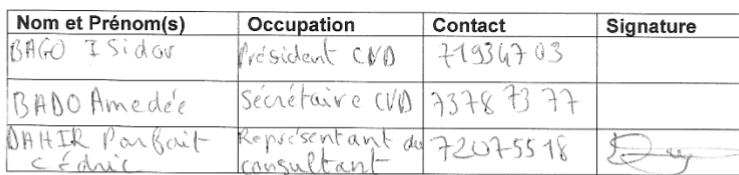 Nom et Prénom(s) Occupation Contact Signature
BAGO ISidor Président CVD 71934703
BADO Amedée Sécrétaire CVD 73787377
DAHIR Parfait Représentant du 72075518
Cédric consultant